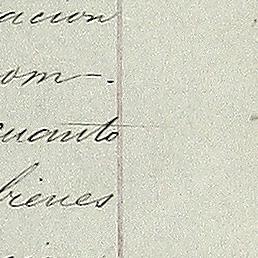 acion
om-.
cuanto
bienes